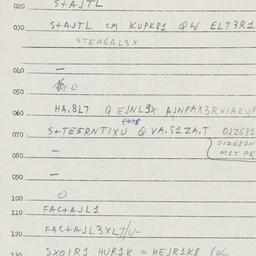 020 S+AJTL
030 S+AJTL CM KUPK81 QW ELT3R1
STENGAL3X
040 —
050 0
060 HA.8L7 Q EJNL3X AJNFAX3RVIAKUP
070 S+TESRNTIXU QVA.S1ZA.T OJZG81
080 —
090 —
100 0
110 FAC+AJL1
120 FAC+AJL3XL7/U-
130 SXOIR1 HUR1K = HEJR1K8